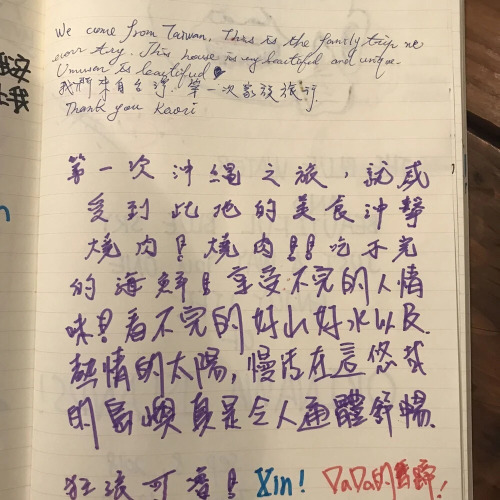 We come from Taiwan, This is the family trip we
ever try. This house is very beautiful and unique.
is beautiful
我們來自台灣. 第一次家族旅行.
Thank you Kaori
第一次沖繩之旅，就感
受到此地的美食沖繩
燒肉!! 燒肉!!! 吃不完
的海鮮!! 享受不完的人情
味!! 看不完的好山好水以及
熱情的太陽，慢活在這悠哉
的島嶼真是令人通體舒暢.
可 !! Xin! DaDa的